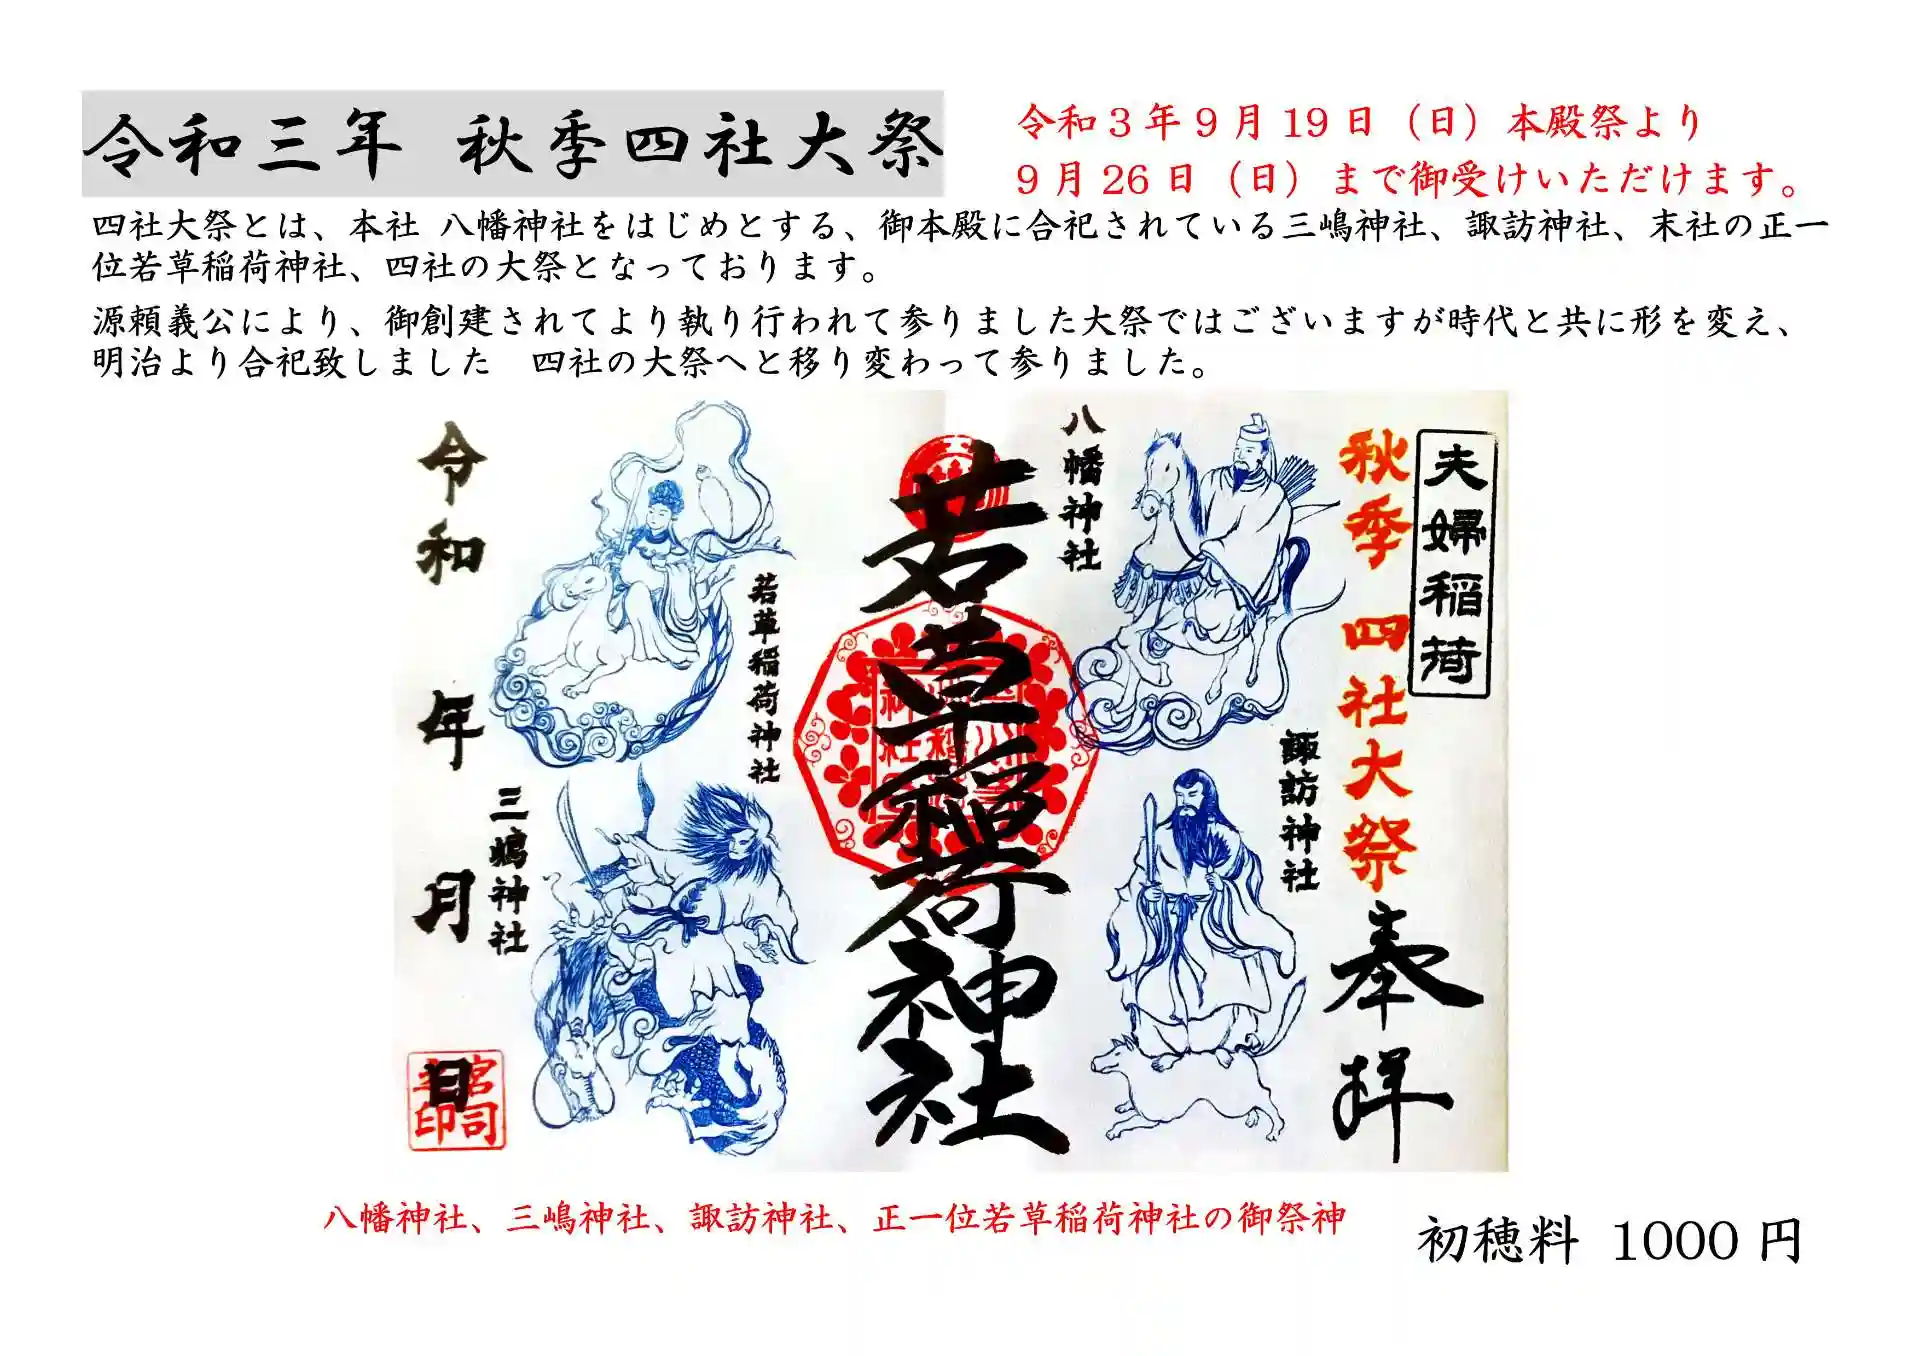 令和三年 秋季四社大祭
令和3年9月19日（日）本殿祭より
9月26日（日）まで御受けいただけます。
四社大祭とは、本社 八幡神社をはじめとする、御本殿に合祀されている三嶋神社、諏訪神社、末社の正一
位若草稲荷神社、四社の大祭となっております。
源頼義公により、御創建されてより執り行われて参りました大祭ではございますが時代と共に形を変え、
明治より合祀致しました　四社の大祭へと移り変わって参りました。
夫婦稲荷
秋季四社大祭
奉拝
八幡神社
諏訪神社
若草稲荷神社
若草稲荷神社
三嶋神社
令和 年 月 日
八幡神社、三嶋神社、諏訪神社、正一位若草稲荷神社の御祭神
初穂料 1000円